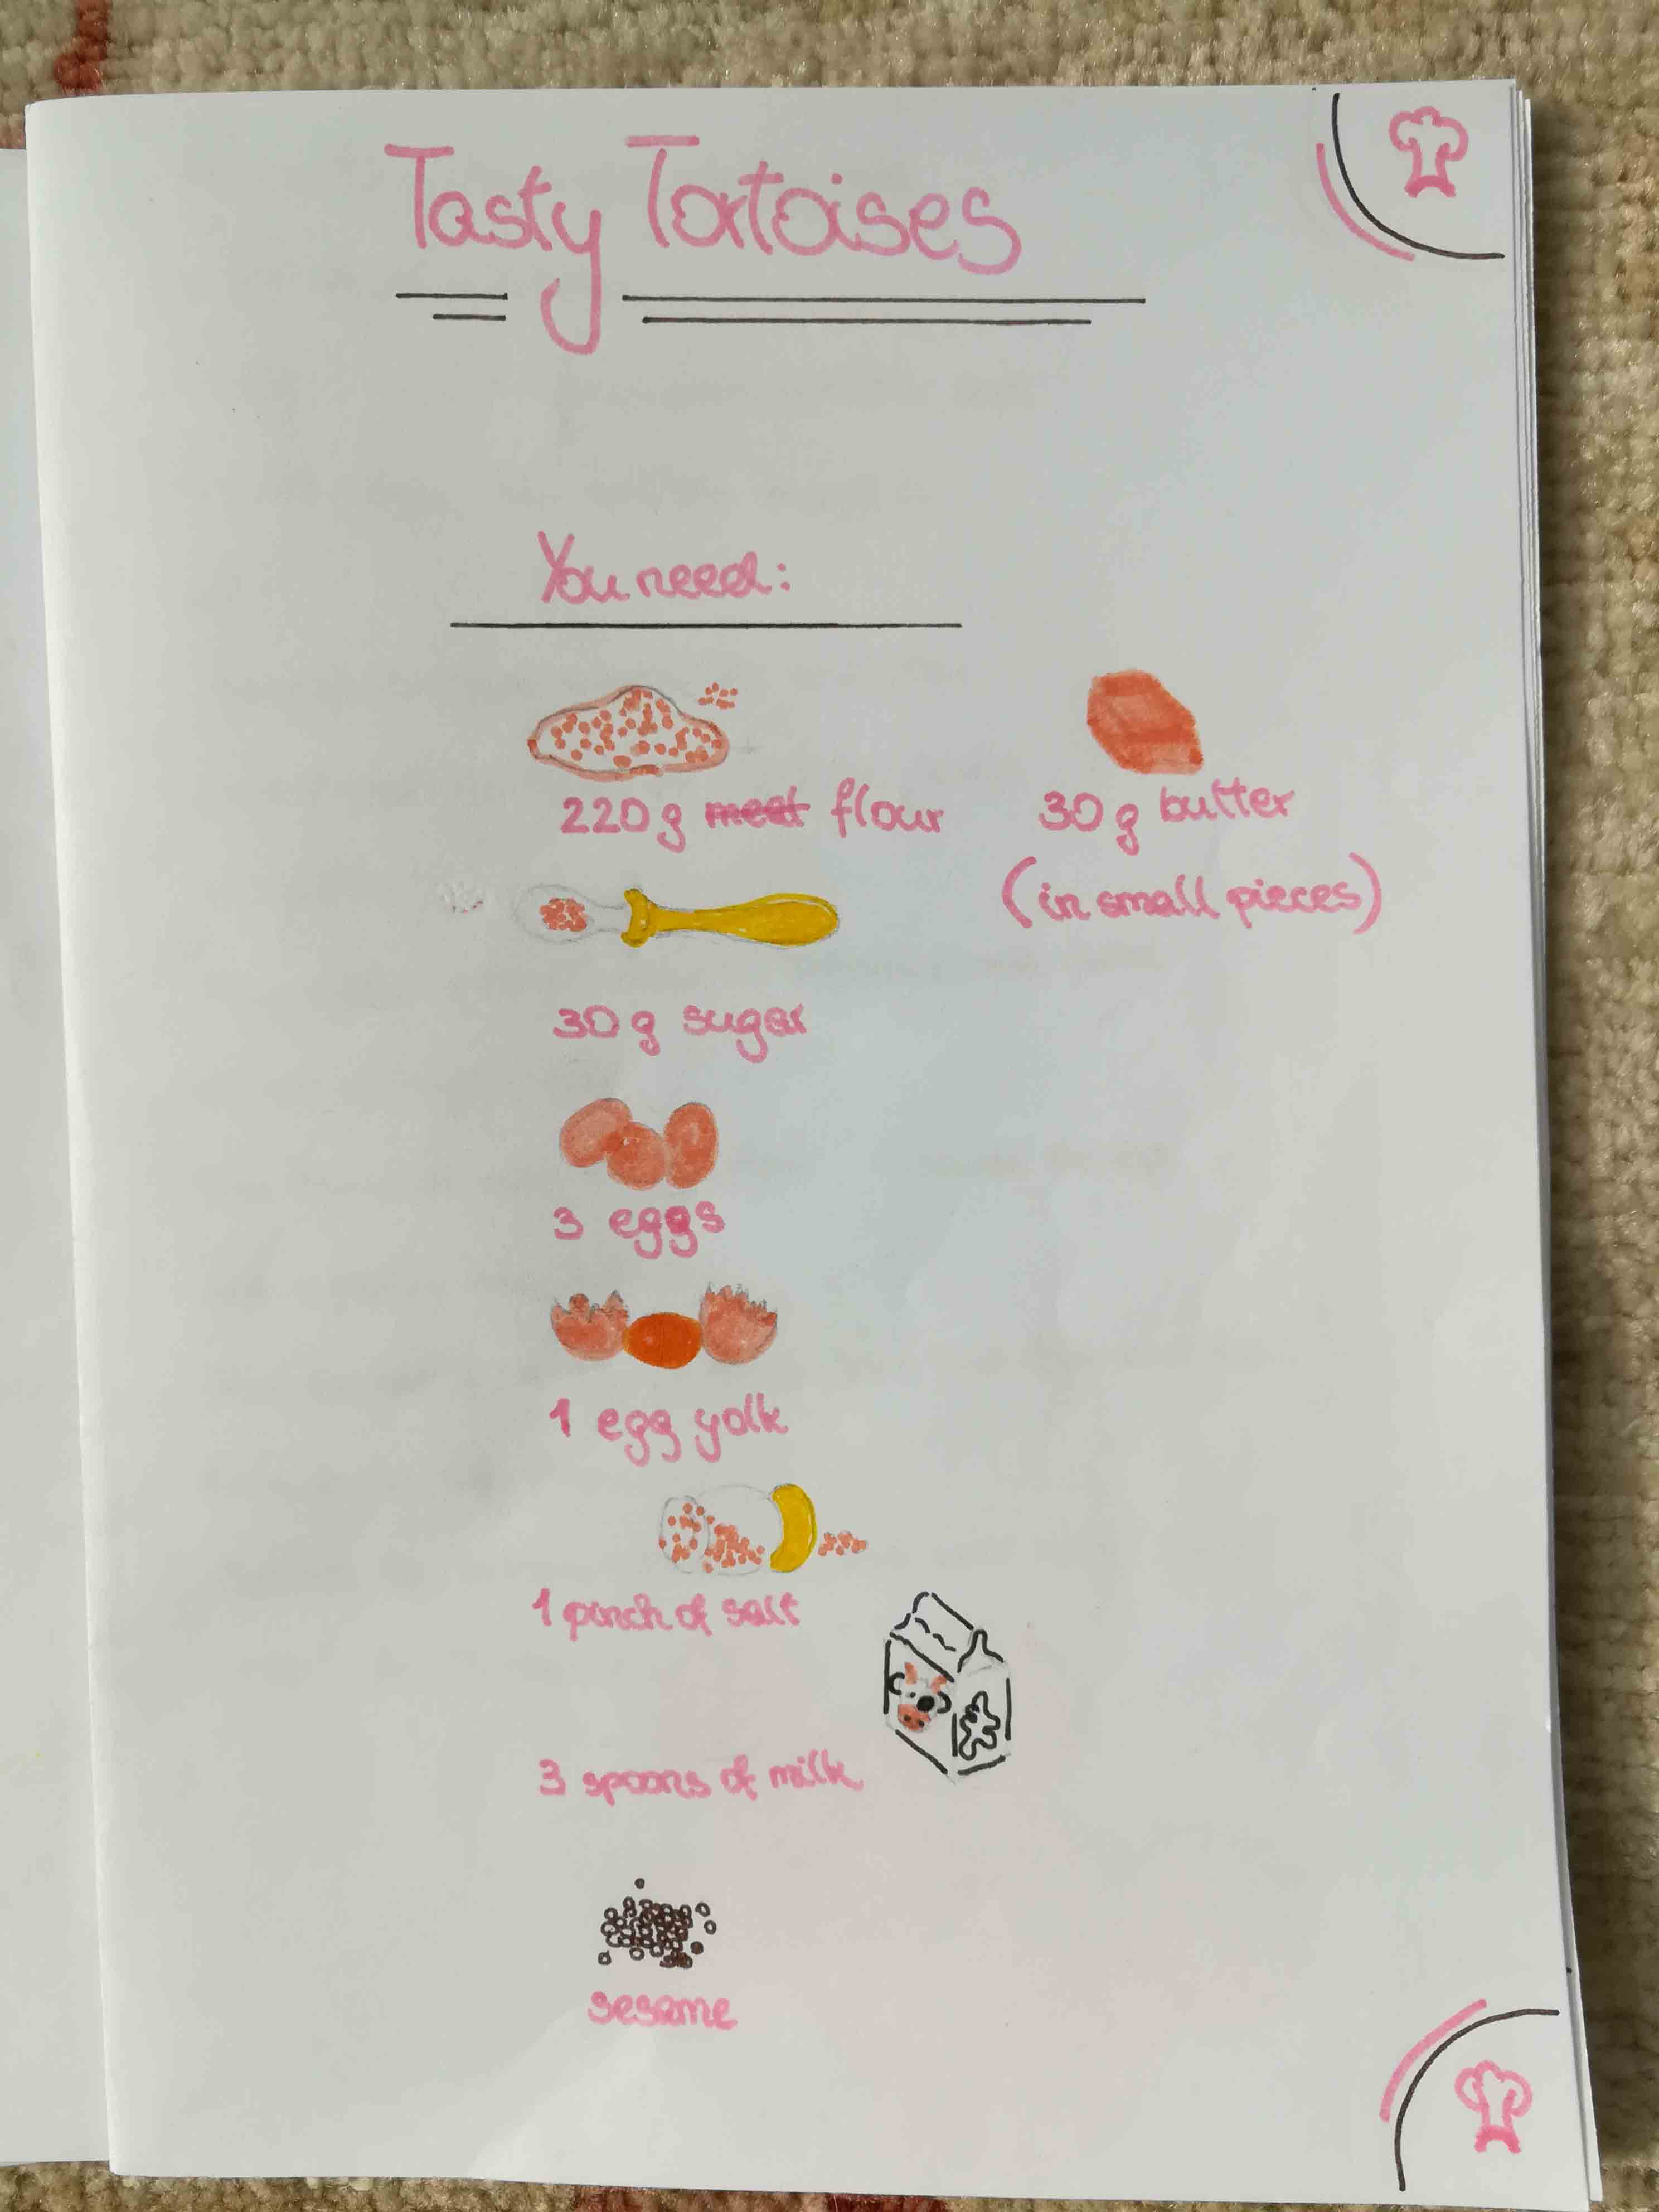 Tasty Tortoises
You need:
220g meat flour
30g butter
(in small pieces)
30g sugar
3 eggs
1 egg yolk
1 pinch of salt
3 spoons of milk
sesame